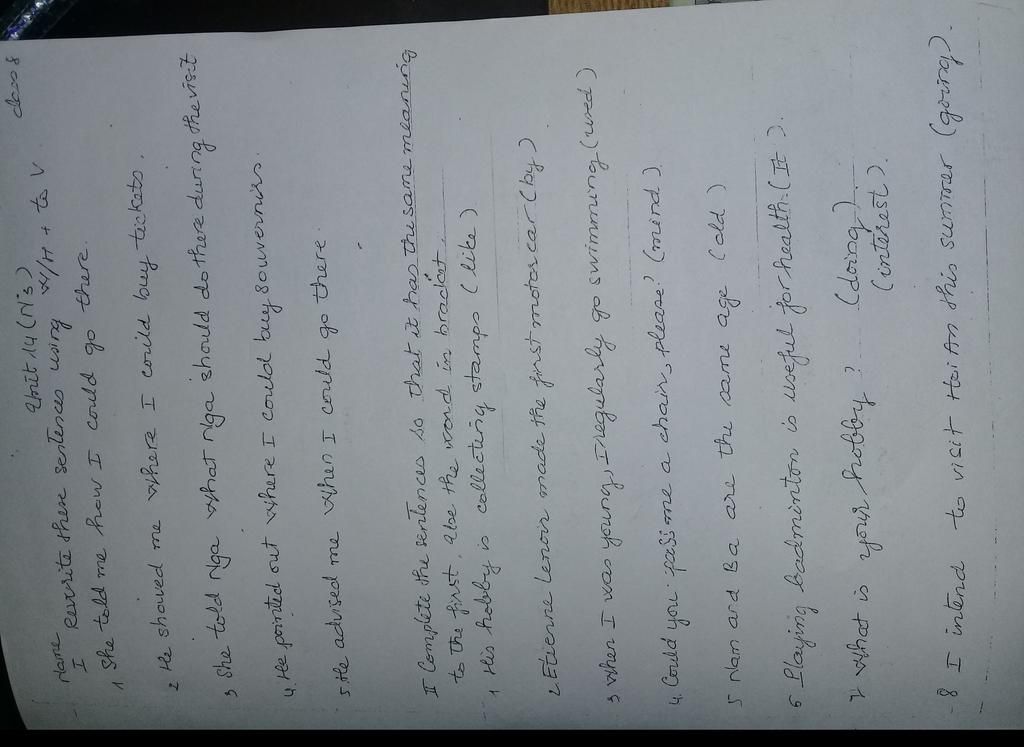 Name Unit 14 (N°3) class 8
I Rewrite these sentences using W/H + to V
1 She told me how I could go there.
2 He showed me where I could buy tickets.
3 She told Nga what Nga should do there during the visit
4. He pointed out where I could buy souvernirs.
5. He advised me when I could go there.
II Complete the sentences so that it has the same meaning
to the first. Use the word in bracket.
1 His hobby is collecting stamps (like)
2 Etienne Lenoir made the first motor car (by)
3 When I was young, I regularly go swimming (used)
4. Could you pass me a chair, please? (mind)
5 Nam and Ba are the same age (old)
6 Playing badminton is useful for health. (It).
7 What is your hobby? (doing)
(interest)
8 I intend to visit Hoi An this summer (going).